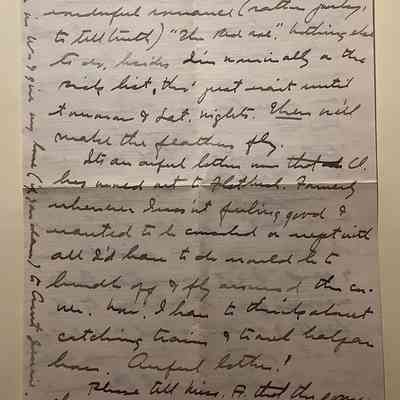 wonderful romance (rather punky,
to tell truth) "The Red One." Nothing else
to do, besides I'm nominally on the
sick list, tho' just wait until
tomorrow & Sat. nights. Then we'll
make the feathers fly.
Its an awful bother now that Cl.
has moved out to Flatbush. Formerly
whenever I wasn't feeling good &
wanted to be consoled or wept with
all I'd have to do would be to
bundle up & fly around the cor-
ner. Now, I have to think about
catching trains & travel half an
hour. Awful bother!
Please tell Miss. A. that the
give my love (if you dare) to Aunt Jennie.